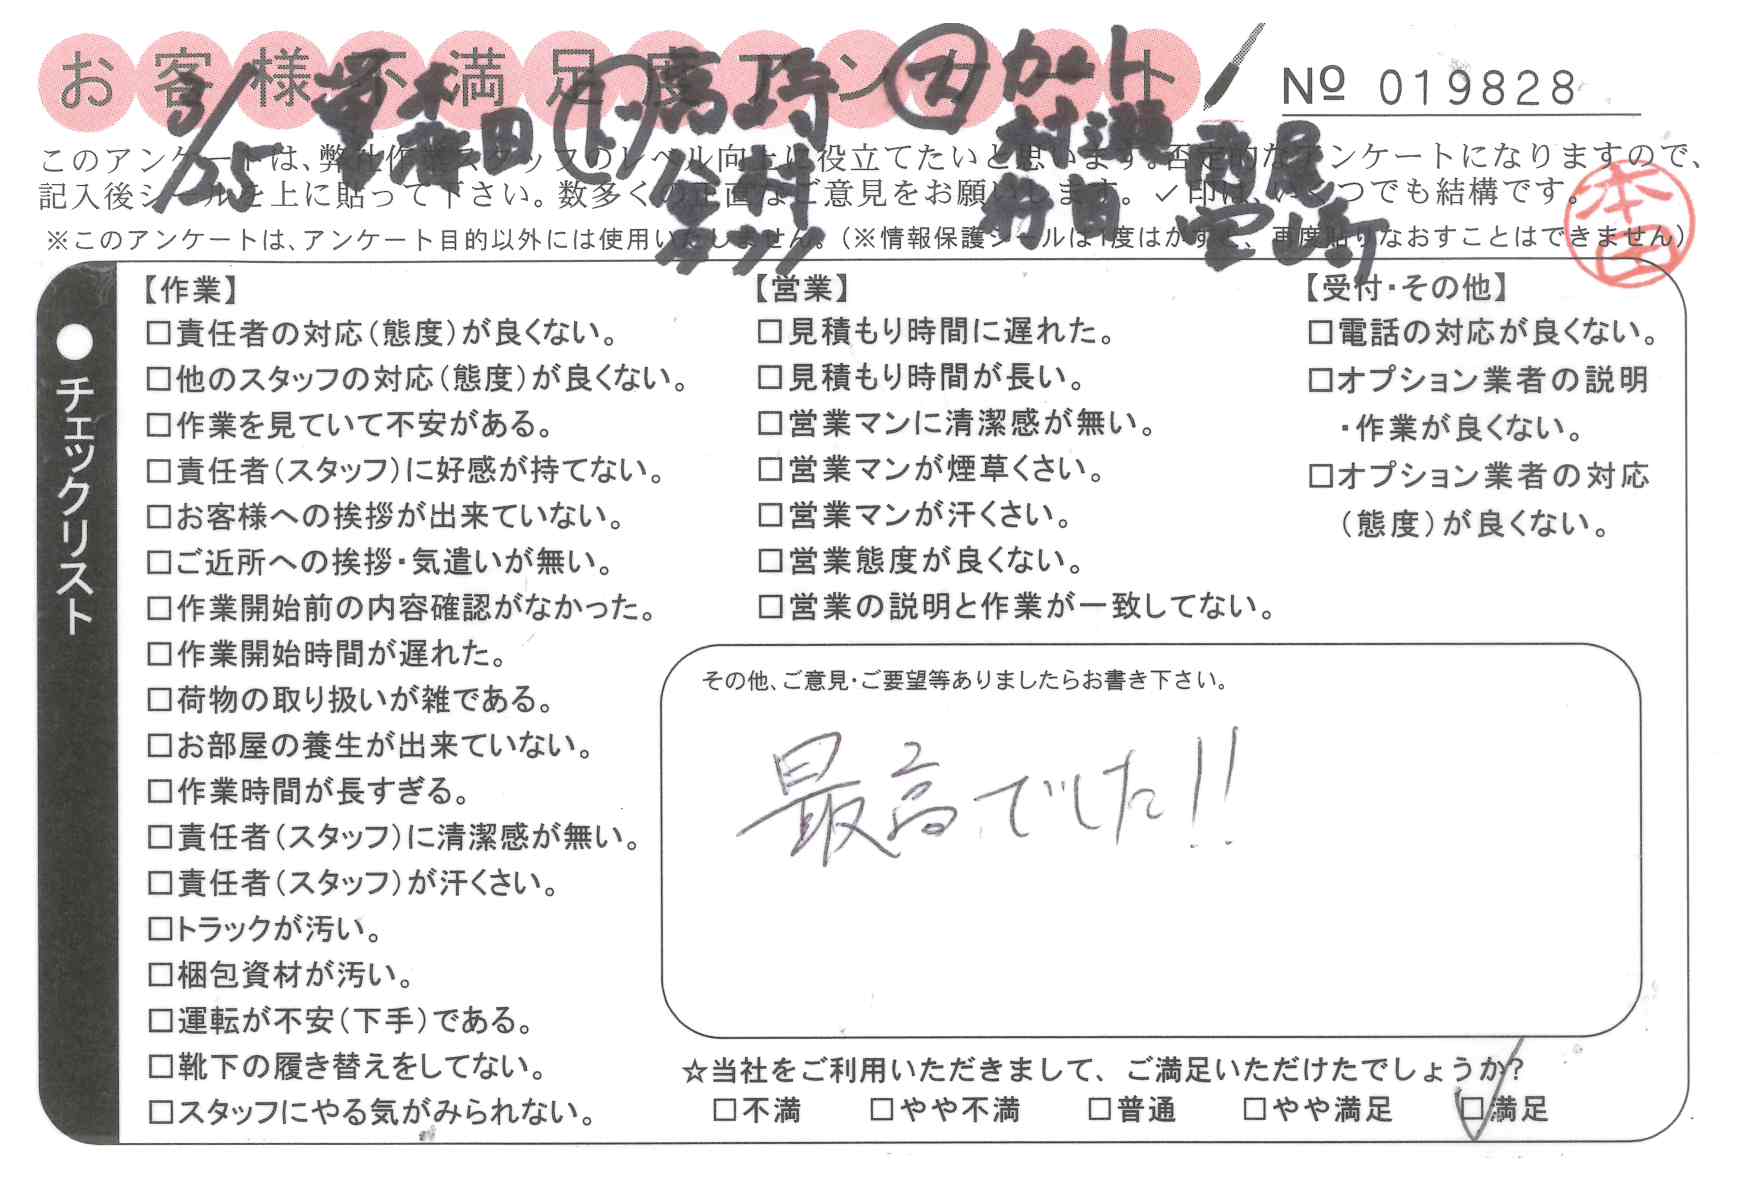 お客様不満足度アンケート
№ 019828
3/25
このアンケートは、弊社作業スタッフのレベル向上に役立てたいと思います。否定的なアンケートになりますので、
記入後シールを上に貼って下さい。数多くの正直なご意見をお願いします。✓印は、いくつでも結構です。
※このアンケートは、アンケート目的以外には使用いたしません。(※情報保護シールは1度はがすと、再度貼りなおすことはできません)
高崎
カート
村瀬
西尾
宮崎
本田
●チェックリスト
【作業】
□責任者の対応(態度)が良くない。
□他のスタッフの対応(態度)が良くない。
□作業を見ていて不安がある。
□責任者(スタッフ)に好感が持てない。
□お客様への挨拶が出来ていない。
□ご近所への挨拶・気遣いが無い。
□作業開始前の内容確認がなかった。
□作業開始時間が遅れた。
□荷物の取り扱いが雑である。
□お部屋の養生が出来ていない。
□作業時間が長すぎる。
□責任者(スタッフ)に清潔感が無い。
□責任者(スタッフ)が汗くさい。
□トラックが汚い。
□梱包資材が汚い。
□運転が不安(下手)である。
□靴下の履き替えをしてない。
□スタッフにやる気がみられない。
【営業】
□見積もり時間に遅れた。
□見積もり時間が長い。
□営業マンに清潔感が無い。
□営業マンが煙草くさい。
□営業マンが汗くさい。
□営業態度が良くない。
□営業の説明と作業が一致してない。
【受付・その他】
□電話の対応が良くない。
□オプション業者の説明
・作業が良くない。
□オプション業者の対応
(態度)が良くない。
その他、ご意見・ご要望等ありましたらお書き下さい。
最高でした!!
☆当社をご利用いただきまして、ご満足いただけたでしょうか?
□不満 □やや不満 □普通 □やや満足 ☑満足